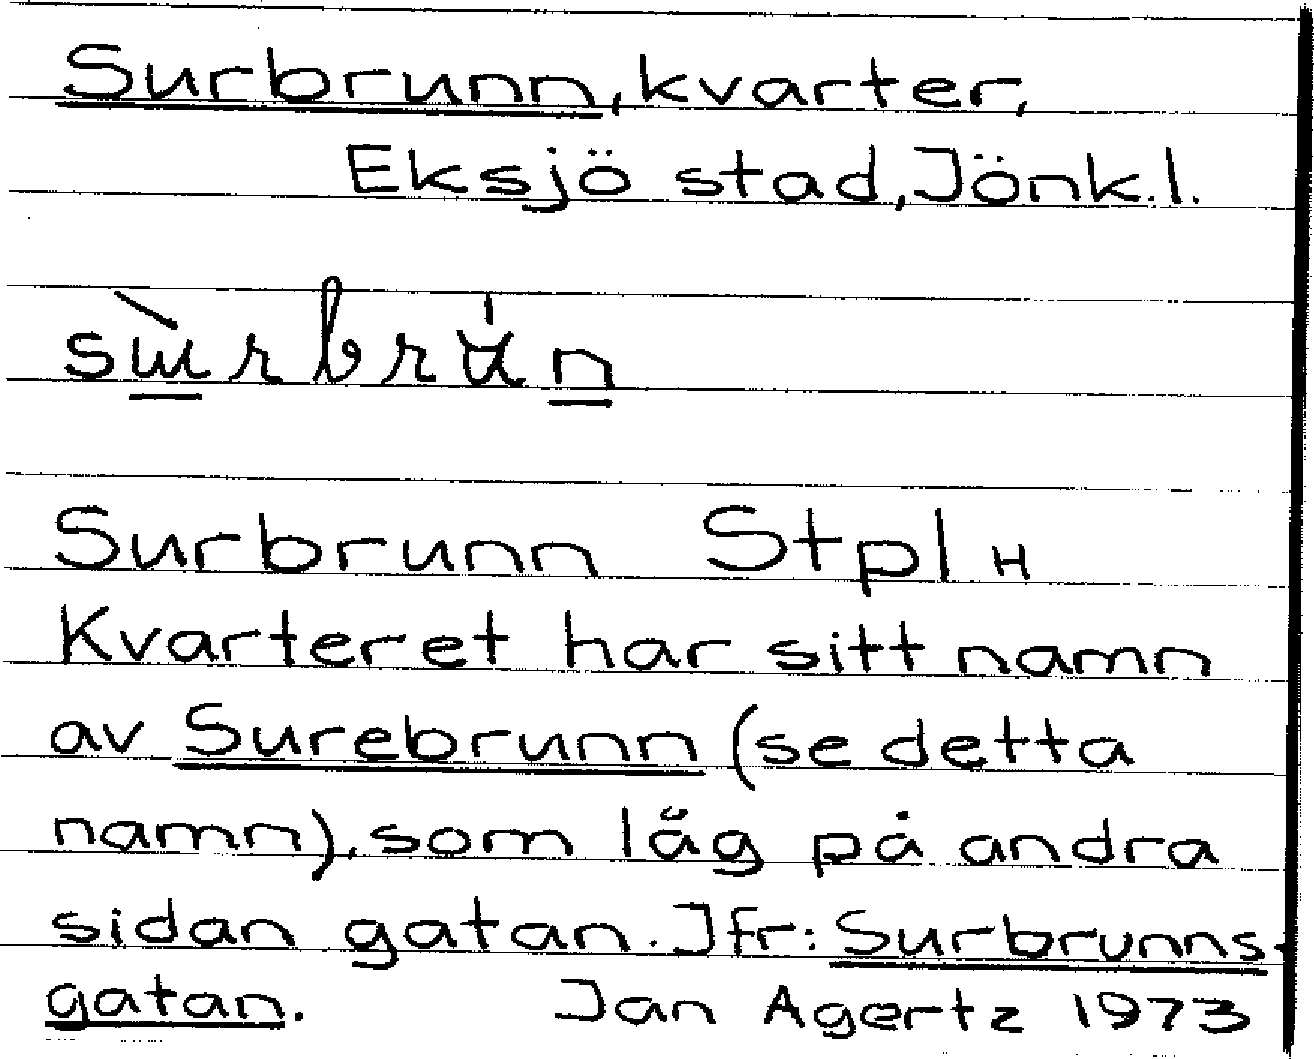 Surbrunn, kvarter,
Eksjö stad, Jönk.l.
Surbrunn Stpl H
Kvarteret har sitt namn
av Surebrunn (se detta
namn), som låg på andra
sidan gatan. Jfr: Surbrunns-
gatan. Jan Agertz 1973